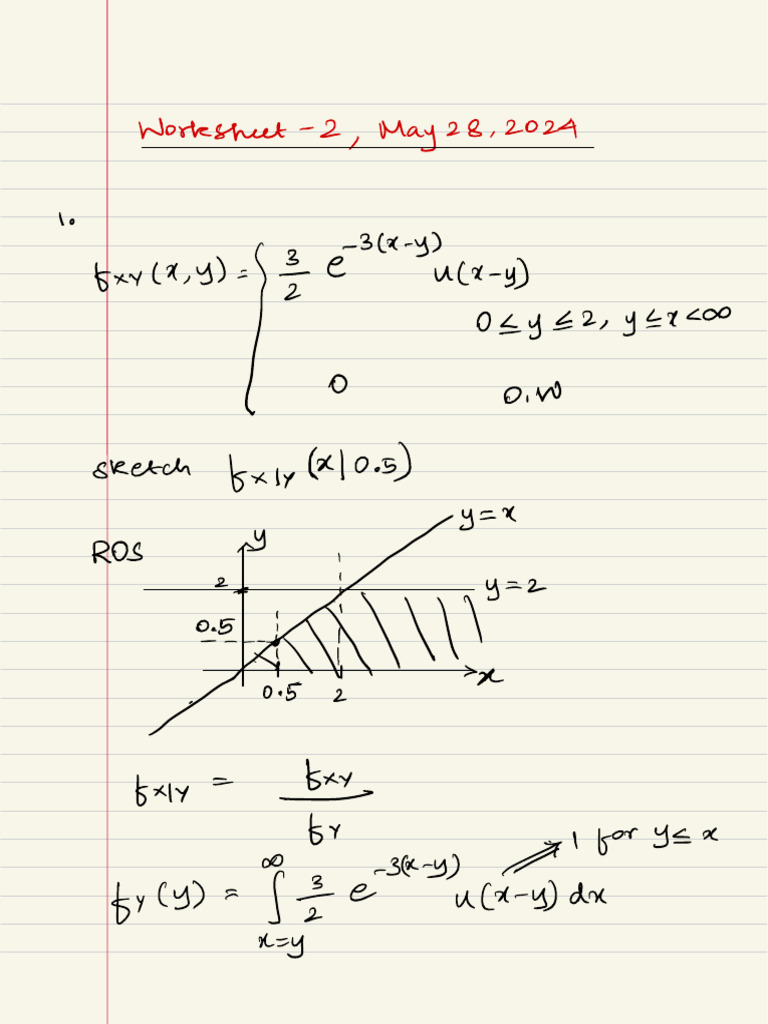 Worksheet - 2, May 28, 2024
1.
f_XY(x, y) = { 3/2 e^-3(x-y) u(x-y)
0 ≤ y ≤ 2, y ≤ x < ∞
0 0.W
sketch f_X|Y (x|0.5)
ROS
y
y = x
2
y = 2
0.5
x
0.5 2
f_X|Y = f_XY / f_Y
1 for y ≤ x
f_Y(y) = ∫_{x=y}^{∞} 3/2 e^-3(x-y) u(x-y) dx